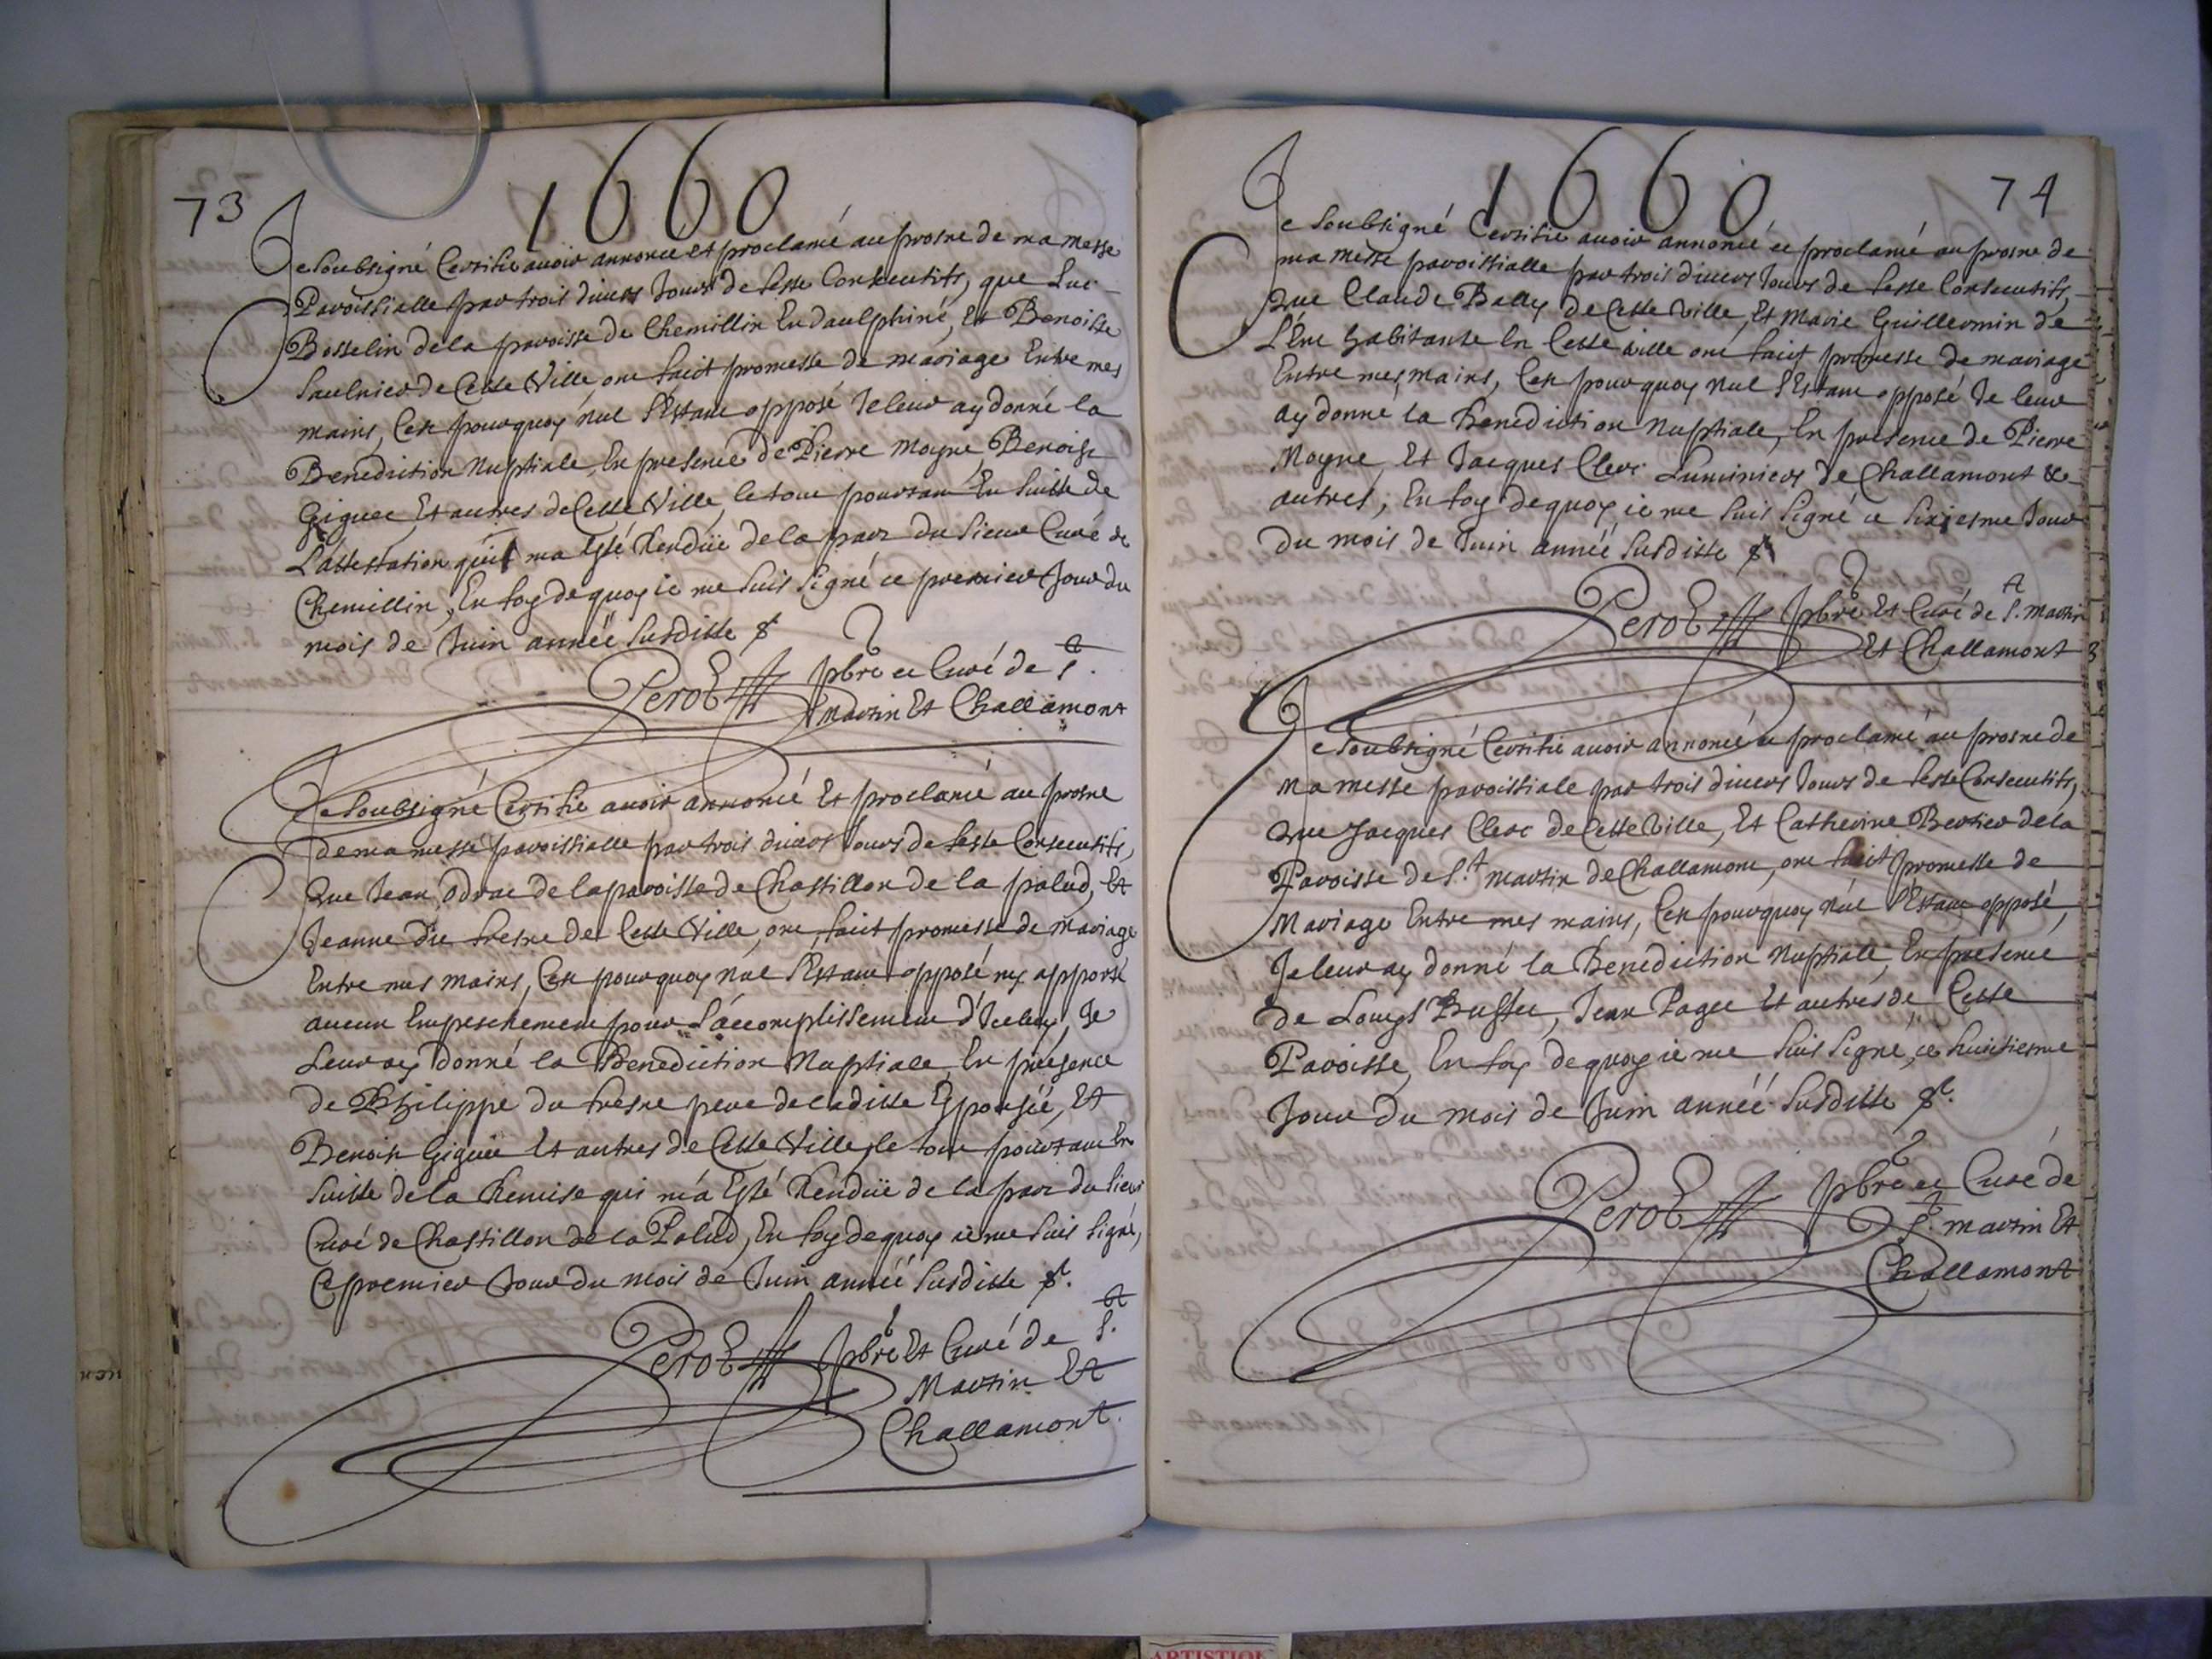 73
1660
Je soubsigné Certifie avoir annoncé et proclamé au prosne de ma messe
Paroissialle par trois divers Jours de feste Consecutifs, que Luc
Bosselin de la paroisse de Chemillin En daulphiné, Et Benoiste
Saulnier de Cette Ville, ont faict promesse de mariage Entre mes
mains, Cest pourquoy nul s'Estant opposé Je leur ay donné la
Benediction Nuptiale, En presence de Pierre Moyne, Benoist
Giguet Et autres de Cette Ville, le tout pourtant En suitte de
L'attestation qui ma Esté Rendüe de la part du Sieur Curé de
Chemillin, En foy de quoy ie me suis signé ce premier Jour du
mois de Juin année susditte &
Perot pbre et Curé de St.
Martin Et Challamont
Je soubsigné Certifie avoir annoncé Et proclamé au prosne
de ma messe paroissialle par trois divers Jours de feste Consecutifs,
Que Jean Odrac de la paroisse de Chastillon de la palud, Et
Jeanne du fresne de Cette Ville, ont faict promesse de mariage
Entre mes mains, Cest pourquoy nul s'Estant opposé ny apporté
aucun Empeschement pour L'accomplissement d'Iceluy, Je
Leur ay donné la Benediction Nuptiale, En présence
de Philippe du fresne pere de laditte Espousée, Et
Benoist Giguet Et autres de Cette Ville, le tout pourtant En
suitte de la Remise qui m'a Esté Rendüe de la part du Sieur
Curé de Chastillon de la Palud, En foy de quoy ie me suis signé,
Ce premier Jour du mois de Juin année susditte &c.
Perot pbre Et Curé de St.
Martin Et
Challamont.
74
1660
Je soubsigné Certifie avoir annoncé et proclamé au prosne de
ma messe paroissialle par trois divers Jours de feste Consecutifs,
Que Claude Bally de Cette Ville, Et Marie Guillermin de
habitante En Cette ville ont faict promesse de mariage
Entre mes mains, Cest pourquoy nul s'Estant opposé Je leur
ay donné la Benediction Nuptiale, En presence de Pierre
Moyne, Et Jacques Clerc Luminiers de Challamont &
autres, En foy de quoy ie me suis signé ce sixiesme Jour
du mois de Juin année susditte &
Perot pbre Et Curé de St. Martin
Et Challamont
Je soubsigné Certifie avoir annoncé et proclamé au prosne de
ma messe paroissiale par trois divers Jours de feste Consecutifs,
Que Jacques Clerc de Cette Ville, Et Catherine Bertier de la
Paroisse de St. Martin de Challamont, ont faict promesse de
Mariage Entre mes mains, Cest pourquoy nul s'Estant opposé,
Je leur ay donné la Benediction Nuptiale, En presence
de Louys Jean Paget Et autres de Cette
Paroisse, En foy de quoy ie me suis signé, ce huictiesme
Jour du mois de Juin année susditte &c.
Perot pbre et Curé de
St. Martin Et
Challamont